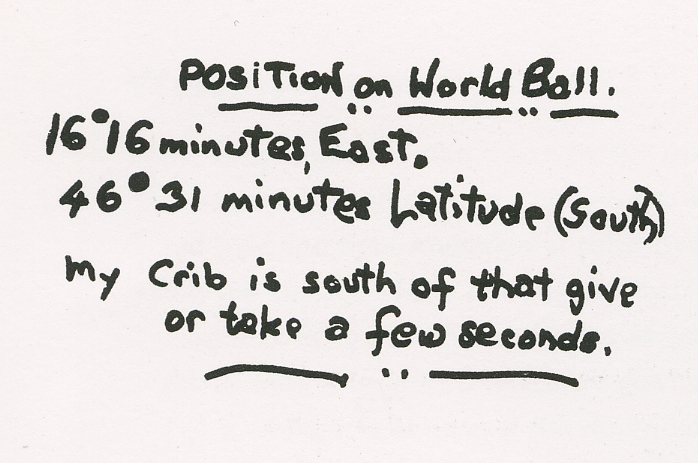 Position on World Ball.
16°16 minutes, East.
46° 31 minutes Latitude (South)
My Crib is south of that give
or take a few seconds.